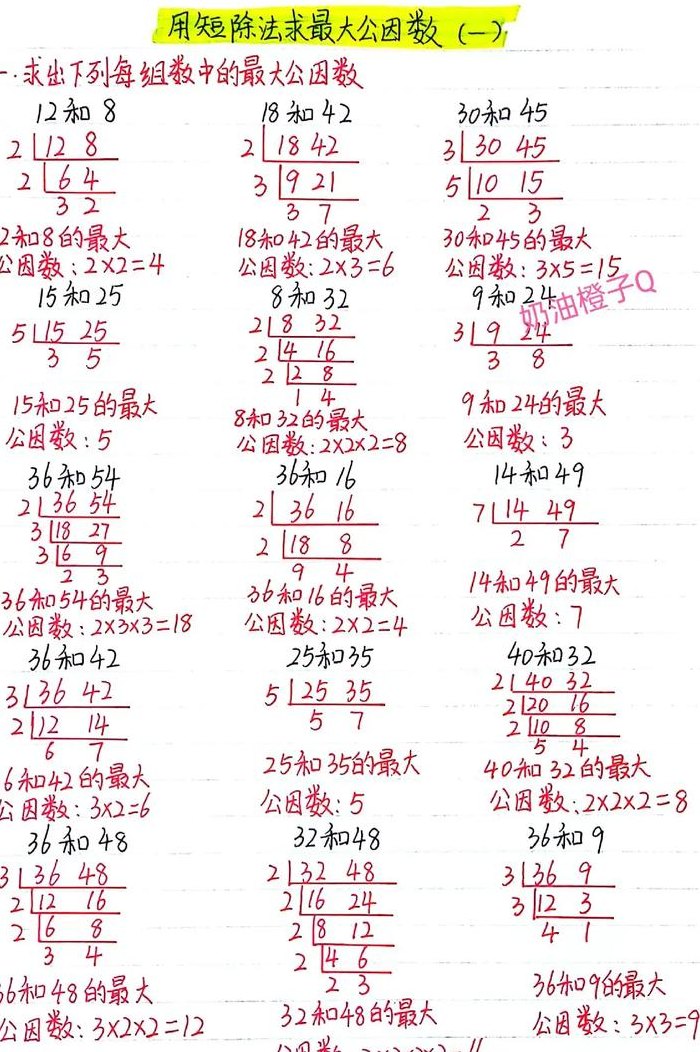 用短除法求最大公因数（一）
一.求出下列每组数中的最大公因数
12和8
2 12 8
2 6 4
3 2
2和8的最大
公因数:2×2=4
18和42
2 18 42
3 9 21
3 7
18和42的最大
公因数:2×3=6
30和45
3 30 45
5 10 15
2 3
30和45的最大
公因数:3×5=15
15和25
5 15 25
3 5
15和25的最大
公因数:5
8和32
2 8 32
2 4 16
2 2 8
1 4
8和32的最大
公因数:2×2×2=8
9和24
3 9 24
3 8
9和24的最大
公因数:3
奶油橙子Q
36和54
2 36 54
3 18 27
3 6 9
2 3
36和54的最大
公因数:2×3×3=18
36和16
2 36 16
2 18 8
9 4
36和16的最大
公因数:2×2=4
14和49
7 14 49
2 7
14和49的最大
公因数:7
36和42
3 36 42
2 12 14
6 7
6和42的最大
公因数:3×2=6
25和35
5 25 35
5 7
25和35的最大
公因数:5
40和32
2 40 32
2 20 16
2 10 8
5 4
40和32的最大
公因数:2×2×2=8
36和48
3 36 48
2 12 16
2 6 8
3 4
36和48的最大
公因数:3×2×2=12
32和48
2 32 48
2 16 24
2 8 12
2 4 6
2 3
32和48的最大
36和9
3 36 9
3 12 3
4 1
36和9的最大
公因数:3×3=9